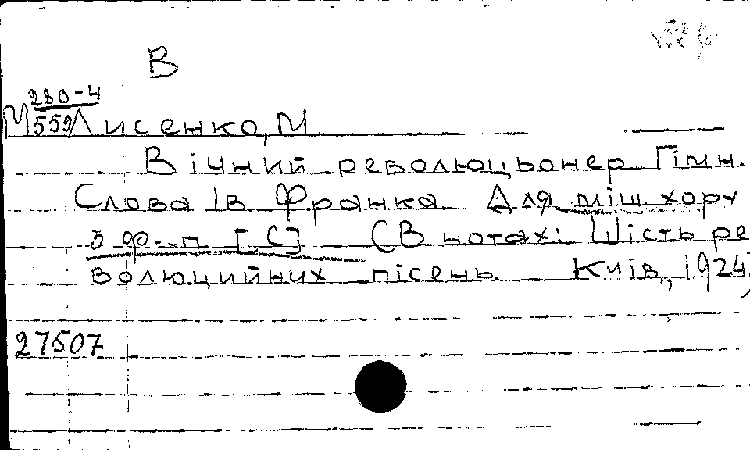 В
М 280-4
559 Лисенко, М
Вічний революцьонер Гімн.
Слова Ів Франка Для міш. хору
з ф.-п. [С] (В нотах: Шість ре
волюцийних пісень Київ, 1924)
27507